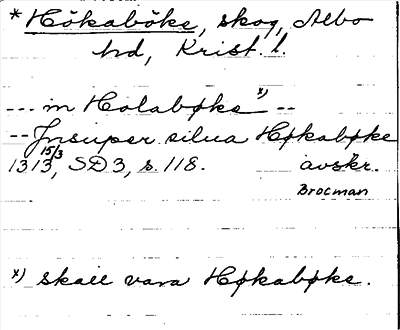 * Hökaböke, skog, Albo
hd, Krist. l.
--- in Holabøke x) --
-- Jnsuper silua Høkabøke
1313 15/3, SD 3, s. 118. avskr.
Brocman
x) skall vara Høkabøke.